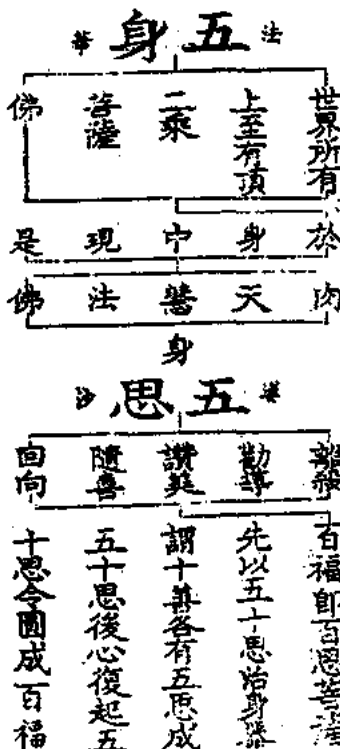 法 五身 華
世界所有
上至有頂
二乘
菩薩
佛
於身中現是
肉天慧法佛
身
婆 五思 沙
離殺
勸導
讚美
隨喜
回向
百福即百思菩薩
先以五十思治身器
謂十善各有五思成
五十思後心復起五
十思令圓成百福